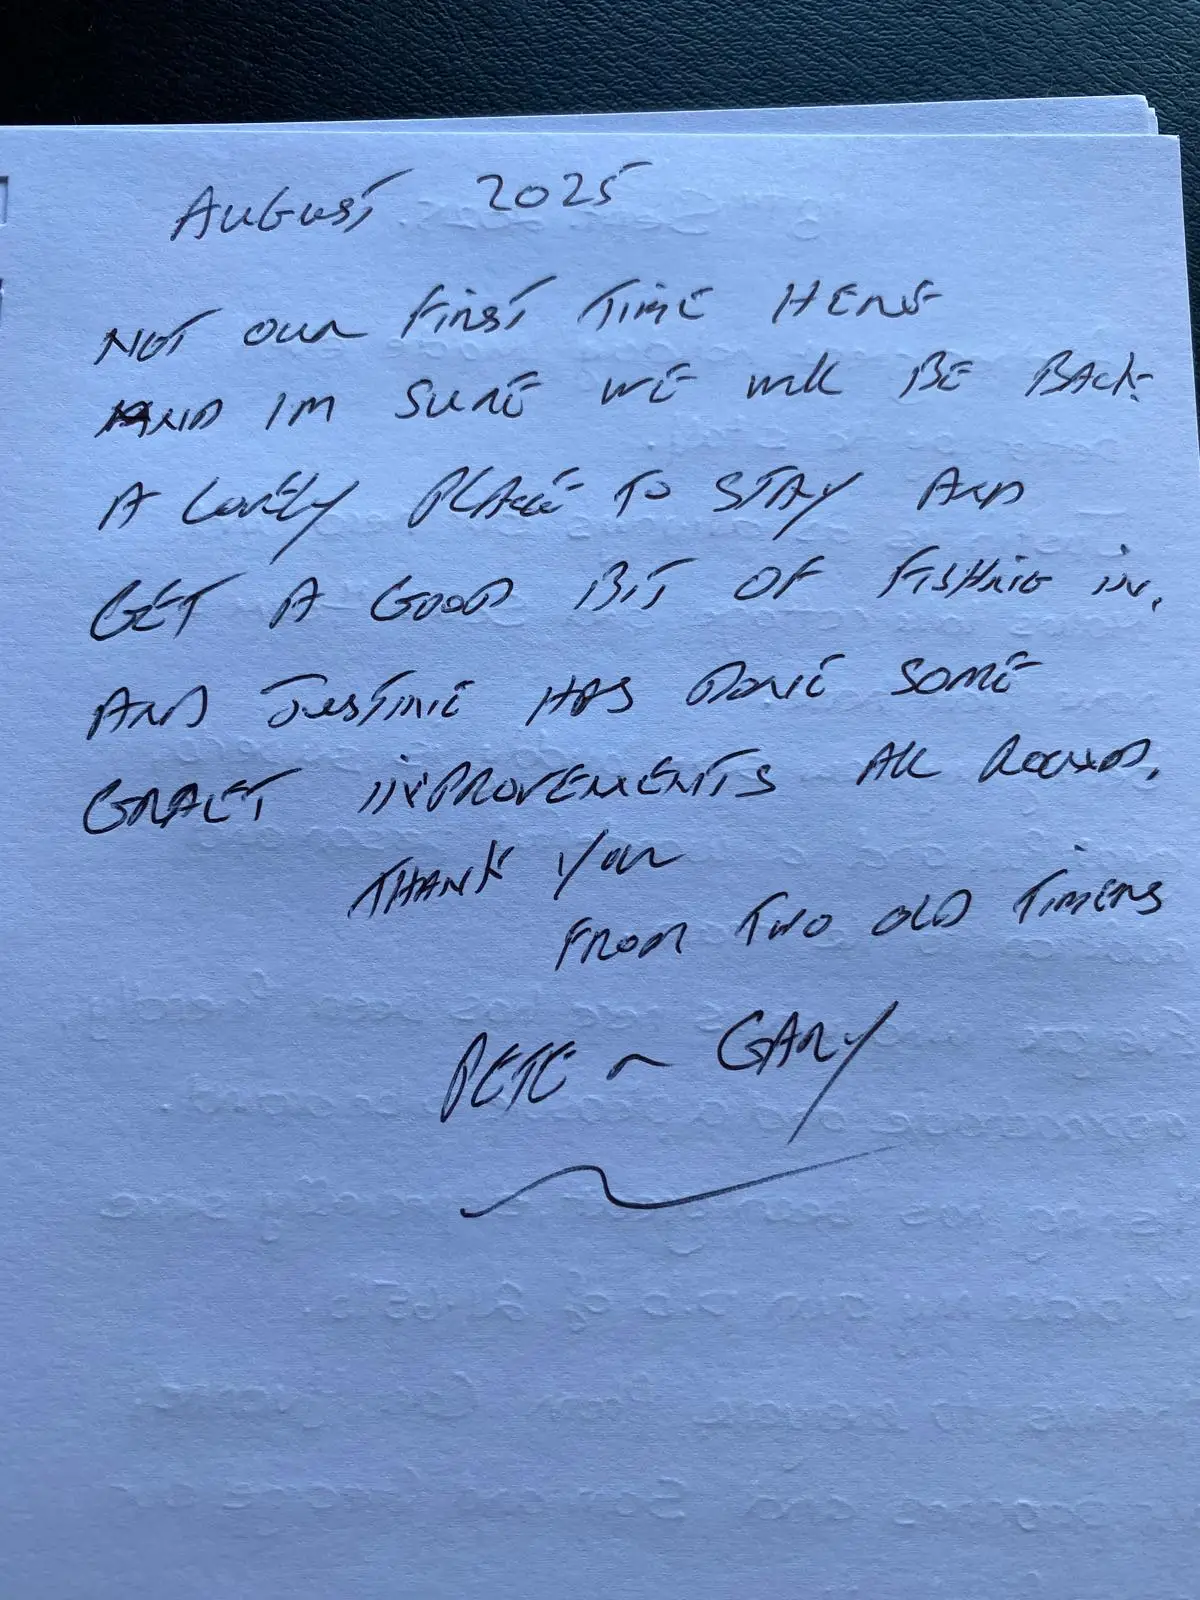 AUGUST 2025
NOT OUR FIRST TIME HERE
AND IM SURE WE WILL BE BACK
A LOVELY PLACE TO STAY AND
GET A GOOD BIT OF FISHING IN,
AND JUSTINE HAS DONE SOME
GREAT IMPROVEMENTS ALL ROUND,
THANK YOU
FROM TWO OLD TIMERS
PETE ~ GARY